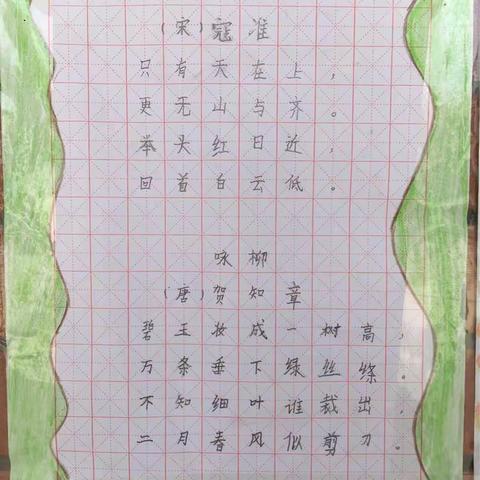 （宋）寇准
只有天在上，
更无山与齐。
举头红日近，
回首白云低。
咏柳
（唐）贺知章
碧玉妆成一树高，
万条垂下绿丝绦。
不知细叶谁裁出，
二月春风似剪刀。